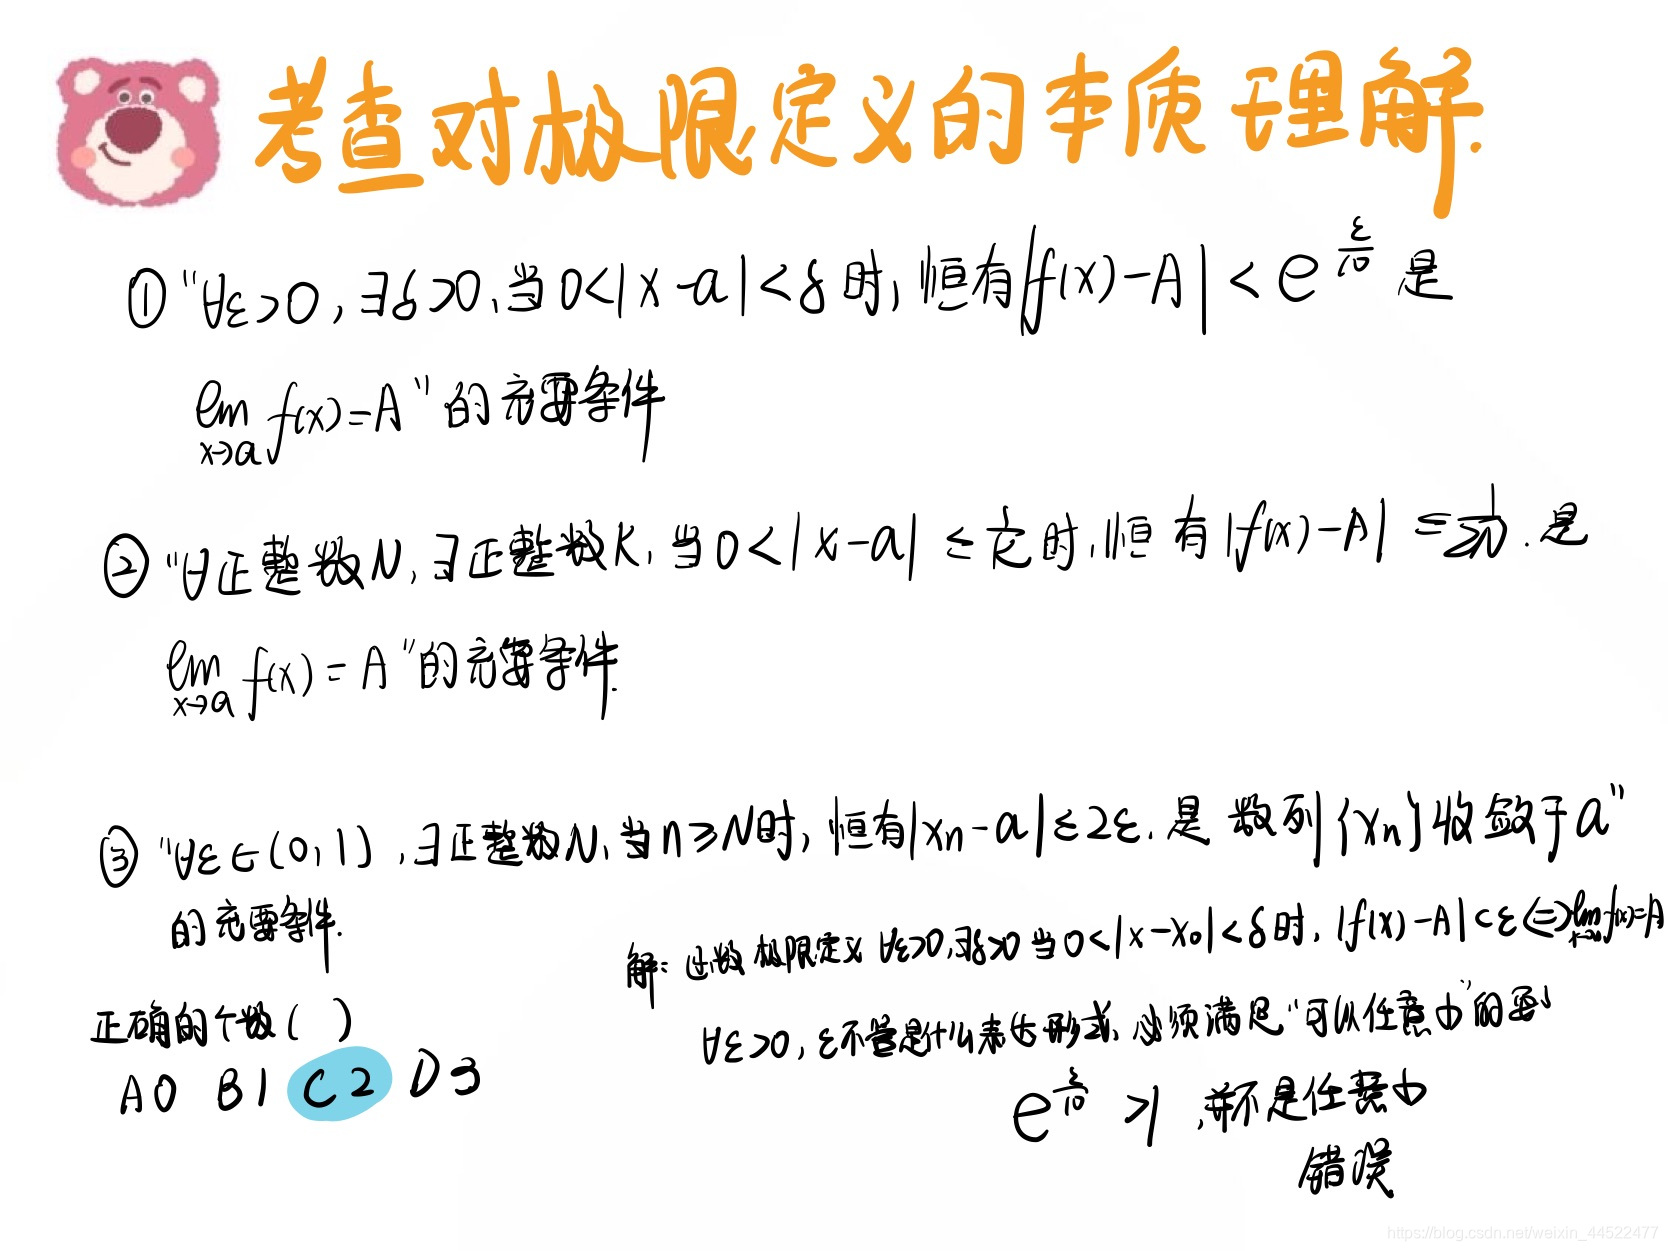 考查对极限定义的本质理解.
① "∀ε>0,∃δ>0,当0<|x-a|<δ时,恒有|f(x)-A|<e^{ε/10} 是
lim_{x→a} f(x)=A"的充要条件
② "∀正整数N,∃正整数K,当0<|x-a|≤1/K时,恒有|f(x)-A|≤1/2N.是
lim_{x→a} f(x)=A"的充要条件.
③ "∀ε∈(0,1),∃正整数N,当n≥N时,恒有|xn-a|≤2ε.是数列{xn}收敛于a"
的充要条件.
解:函数极限定义 ∀ε>0,∃δ>0 当0<|x-x₀|<δ时,|f(x)-A|<ε⇔lim f(x)=A
正确的个数( )
∀ε>0,ε不管是什么表达形式,必须满足"可以任意小"的要
A 0 B 1 C 2 D 3
e^{ε/10} >1,并不是任意小
错误
https://blog.csdn.net/weixin_44522477